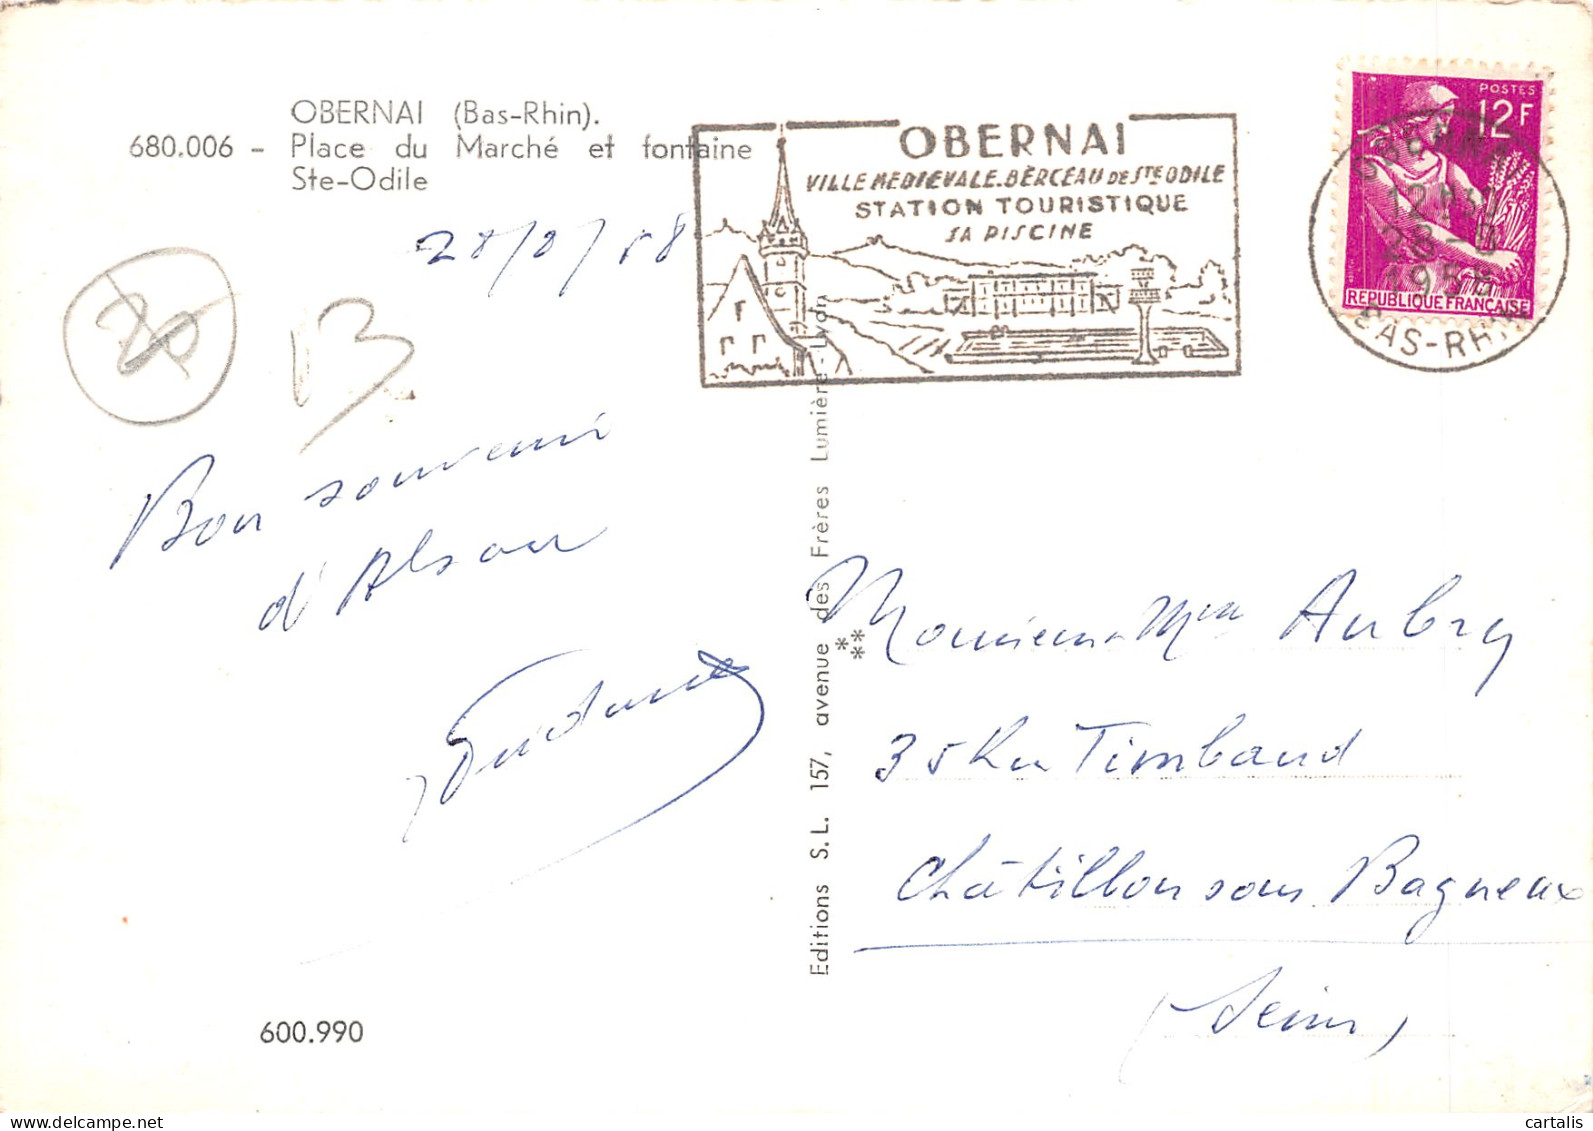 OBERNAI (Bas-Rhin).
680.006 - Place du Marché et fontaine
Ste-Odile
28/8/58
OBERNAI
VILLE MEDIEVALE. BERCEAU DE STE ODILE
STATION TOURISTIQUE
SA PISCINE
POSTES
12F
REPUBLIQUE FRANCAISE
OBERNAI
12H30
28-8
1958
BAS-RHIN
B
Bon souvenir
d'Alsace
Editions S.L. 157, avenue des Frères Lumière - Lyon
Monsieur Mme Aubry
35 Rue Timbaud
Châtillon sous Bagneux
(Seine)
600.990
cartalis
www.delcampe.net